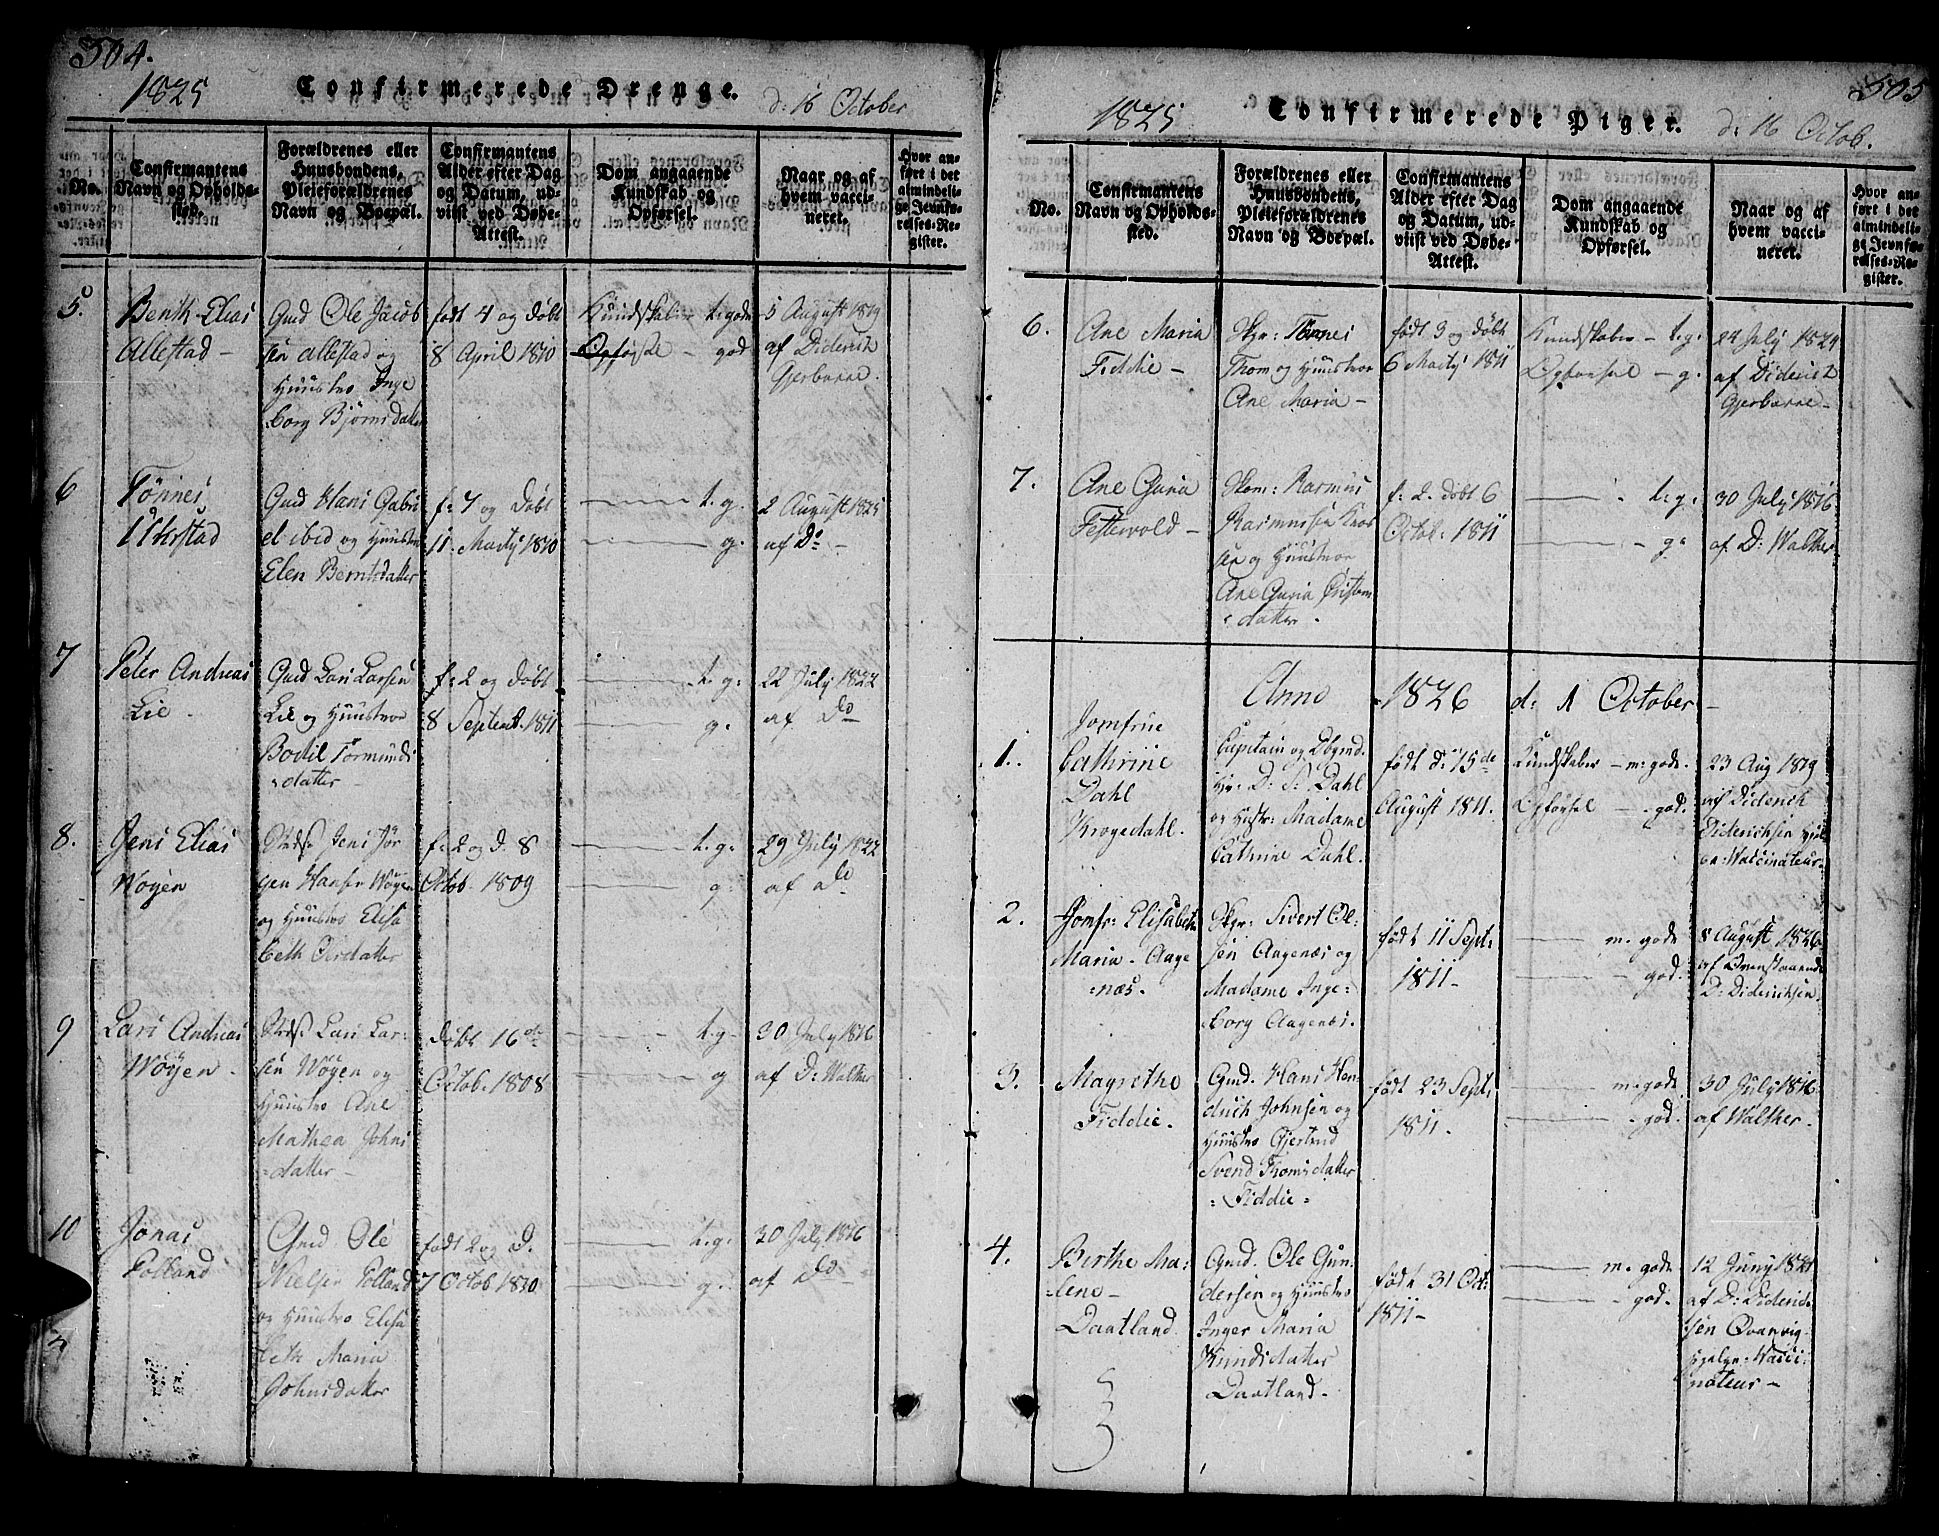 504.
1825 Confirmerede Drenge. d: 16 October
No.
Confirmantens Navn og Opholds-sted.
Forældrenes eller Huusbondens, Pleieforældrenes Navn og Boepæl.
Confirmantens Alder efter Dag og Datum, ud-viist ved Døbe-Attest.
Dom angaaende Kundskab og Opførsel.
Naar og af hvem vacci-neret.
Hvor an-ført i det almindeli-ge Jevnfø-relses-Re-gister.
5. Berith Elias
Allestad -
Gmd Ole Jacob
sen Allestad og
Huustro Inge
borg Bjørnsdatter
født 4 og døbt
8 April 1810
Kundskab - t: gode
Opførsel - god
5 August 1819
af Diderich
Gjerbarne.
6 Tønnes
Gmd Hans Gabri
el ibid og Huustro
Elen Berntsdatter
f: 7 og døbt
11. Martj 1810
t. g.
g.
2 August 1825
af Do -
7 Peter Andreas
Lie.
Gmd Lars Larsen
Lie og Huustroe
Bodil Tormunds
datter -
f: 2 og døbt
8 Septenb. 1811
t. g:
g.
22 July 1822
af Do
8. Jens Elias
Wøÿen
Jens Jør
gen Hansen Wøÿen
og Huustro Elisa
beth
f: 2 og d. 8
Octob. 1809
t. g.
g.
29 July 1822
af Do
9 Lars Andreas
Wøÿen.
Lars Lar-
sen Wøÿen og
Huustro Ane
Mathea Johns
datter -
døbt 16de
Octob. 1808
t. g.
g
30 July 1816
af D: Walther
10 Jonas
Folland
Gmd Ole
Nielsen Folland
og Huustro Elisa
beth Maria
Johnsdatter
født 2 og d.
7 Octob 1810.
t. g.
g.
30 July 1816
af Do
505
1825 Confirmerede Piger. d: 16 Octob.
No.
Confirmantens Navn og Opholds-sted.
Forældrenes eller Huusbondens, Pleieforældrenes Navn og Boepæl.
Confirmantens Alder efter Dag og Datum, ud-viist ved Døbe-Attest.
Dom angaaende Kundskab og Opførsel.
Naar og af hvem vacci-neret.
Hvor an-ført i det almindeli-ge Jevnfø-relses-Re-gister.
6. Ane Maria
Fiddie -
Skpr: Tønnes
Thom og Huustroe
Ane Maria -
født 3 og døbt
6 Martj 1811
Kundskaber - t: g.
Opførsel - g.
24 July 1824
af Diderich
Gjerbarne -
7. Ane Guria
Festervold -
Rasmus
Rasmussen
sen og Huustroe
Ane Guria
datter.
f: 2. døbt 6
Octob. 1811
t: g.
g.
30 July 1816
af. D: Walther
Anno 1826 d: 1 October -
1. Jomfrue
Cathrine
Dahl
Krogedahl.
Capitain og
Hr. D. S. Dahl
og Hustr: Madame
Cathrine Dahl.
født d: 15de
August 1811.
Kundskaber - m: gode.
Opførsel - god.
23 Aug 1819
af Diderich
Diderichsen
Vaccinateur
2. Jomfr: Elisabeth
Maria. Aage
næs.
Skpr: Sivert Ol-
sen Aagenæs og
Madame Inge-
borg Aagenes.
født 11 Sept:
1811 -
m. gode
god.
8 August 1826
af Ovenstaaende
D: Diderichsen
3. Magrethe
Fiddie.
Gmd. Hans Hen-
drich Johnsen og
Huustro Gjertrud
Svend Thomsdatter
Fiddie
født 23 Sept:
1811.
m. gode
god.
30 July 1816
af Walther.
4. Birthe Ma-
lene -
Daatland
Gmd. Ole Gun-
dersen og Huustro
Inger Maria
Knudsdatter
Daatland.
født 31 Oct:
1811 -
m. gode
god.
12 Juny 1821
af D: Diderich
sen Qvanvig
hjelpe: Vacci-
nateur -